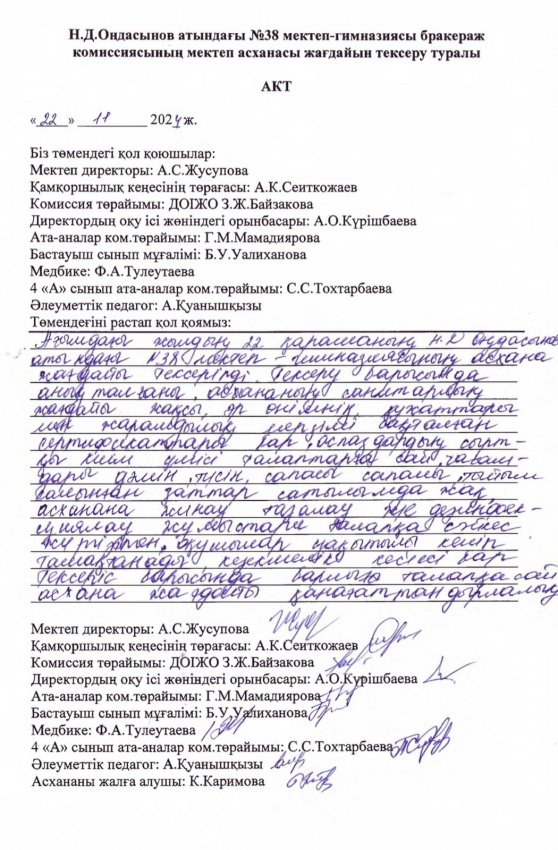 Н.Д.Оңдасынов атындағы №38 мектеп-гимназиясы бракераж
комиссиясының мектеп асханасы жағдайын тексеру туралы
АКТ
«22» 11 2024 ж.
Біз төмендегі қол қоюшылар:
Мектеп директоры: А.С.Жусупова
Қамқоршылық кеңесінің төрағасы: А.К.Сеиткожаев
Комиссия төрайымы: ДОІЖО З.Ж.Байзакова
Директордың оқу ісі жөніндегі орынбасары: А.О.Күрішбаева
Ата-аналар ком.төрайымы: Г.М.Мамадиярова
Бастауыш сынып мұғалімі: Б.У.Уалиханова
Медбике: Ф.А.Тулеутаева
4 «А» сынып ата-аналар ком.төрайымы: С.С.Тохтарбаева
Әлеуметтік педагог: А.Қуанышқызы
Төмендегіні растап қол қоямыз:
Ағымдағы жылдың 22 қарашаның Н.Д Оңдасынов
атындағы №38 мектеп-гимназиясының асхана
жағдайы тексерілді. Тексеру барысында
анықталғаны, асхананың санитарлық
жағдайы жақсы, әр өнімнің құжаттары
мен жарамдылық мерзімі сақталған
сертификаттары бар, аспаздардың сырт-
қы киім үлгісі талаптарға сай, тағам-
дары дәмін, түсін, сапасы сапалы, тыйым
салынған заттар сатылымда жоқ
асхананы жинау тазалау және дезинфек-
циялау жұмыстары талапқа сәйкес
жүргізілген, оқушылар уақытылы келіп
тамақтанады, кезекшілік кестесі бар
Тексеріс барысында барлығы талапқа сай
асхана жағдайы қанағаттандырлалық
Мектеп директоры: А.С.Жусупова
Қамқоршылық кеңесінің төрағасы: А.К.Сеиткожаев
Комиссия төрайымы: ДОІЖО З.Ж.Байзакова
Директордың оқу ісі жөніндегі орынбасары: А.О.Күрішбаева
Ата-аналар ком.төрайымы: Г.М.Мамадиярова
Бастауыш сынып мұғалімі: Б.У.Уалиханова
Медбике: Ф.А.Тулеутаева
4 «А» сынып ата-аналар ком.төрайымы: С.С.Тохтарбаева
Әлеуметтік педагог: А.Қуанышқызы
Асхананы жалға алушы: К.Каримова